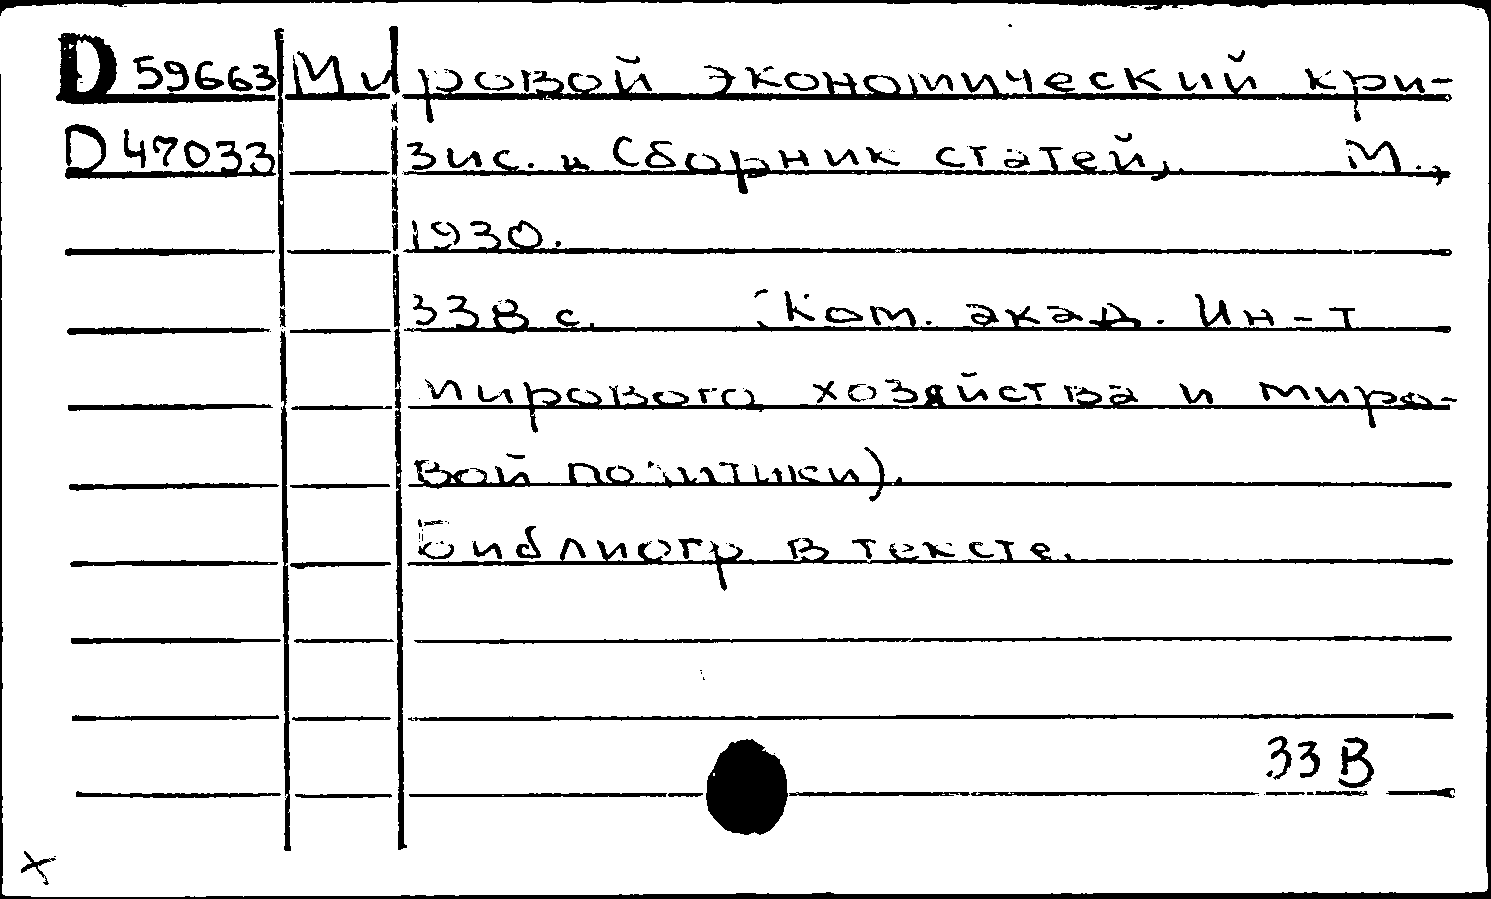 D 59663 Мировой экономический кри-
D 47033 зис. Сборник статей, М.,
1930.
338 с. (Ком. акад. Ин-т
мирового хозяйства и миро-
вой политики).
Библиогр в тексте.
33 В